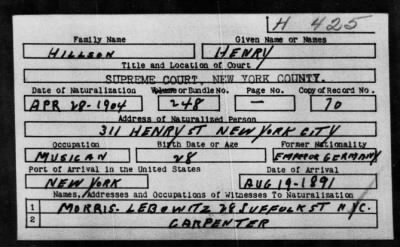 H 425
Family Name Given Name or Names
HILLSON HENRY
Title and Location of Court
SUPREME COURT, NEW YORK COUNTY.
Date of Naturalization Volume or Bundle No. Page No. Copy of Record No.
APR 28-1904 248 — 70
Address of Naturalized Person
311 HENRY ST NEW YORK CITY
Occupation Birth Date or Age Former Nationality
MUSICAN 28 GERMANY
Port of Arrival in the United States Date of Arrival
NEW YORK AUG 19-1891
Names, Addresses and Occupations of Witnesses To Naturalization
1 MORRIS. LEBOWITZ 28 SUFFOLK ST N.Y.C.
2 CARPENTER